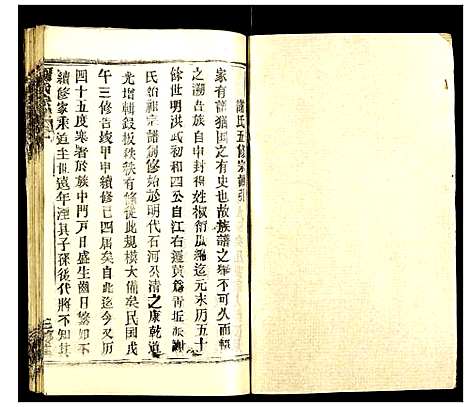 謝氏五修宗譜引
家有譜猶国之有史也故族譜之舉不可久而輟
之溯吾族自申封得姓椒衍瓜緜迄元末历五十
餘世明洪武初和四公自江右遷黄爲靑坵派謝
氏始祖宗譜創修始於明代石河公清之康乾道
光增輯鋟板秩秩有條從此規模大備矣民国戊
午三修告竣甲申續修已四届矣自此迄今又历
四十五度寒暑於族中門戸日盛生齒日繁如不
續修家乘追至世遠年湮其子孫後代將不知其